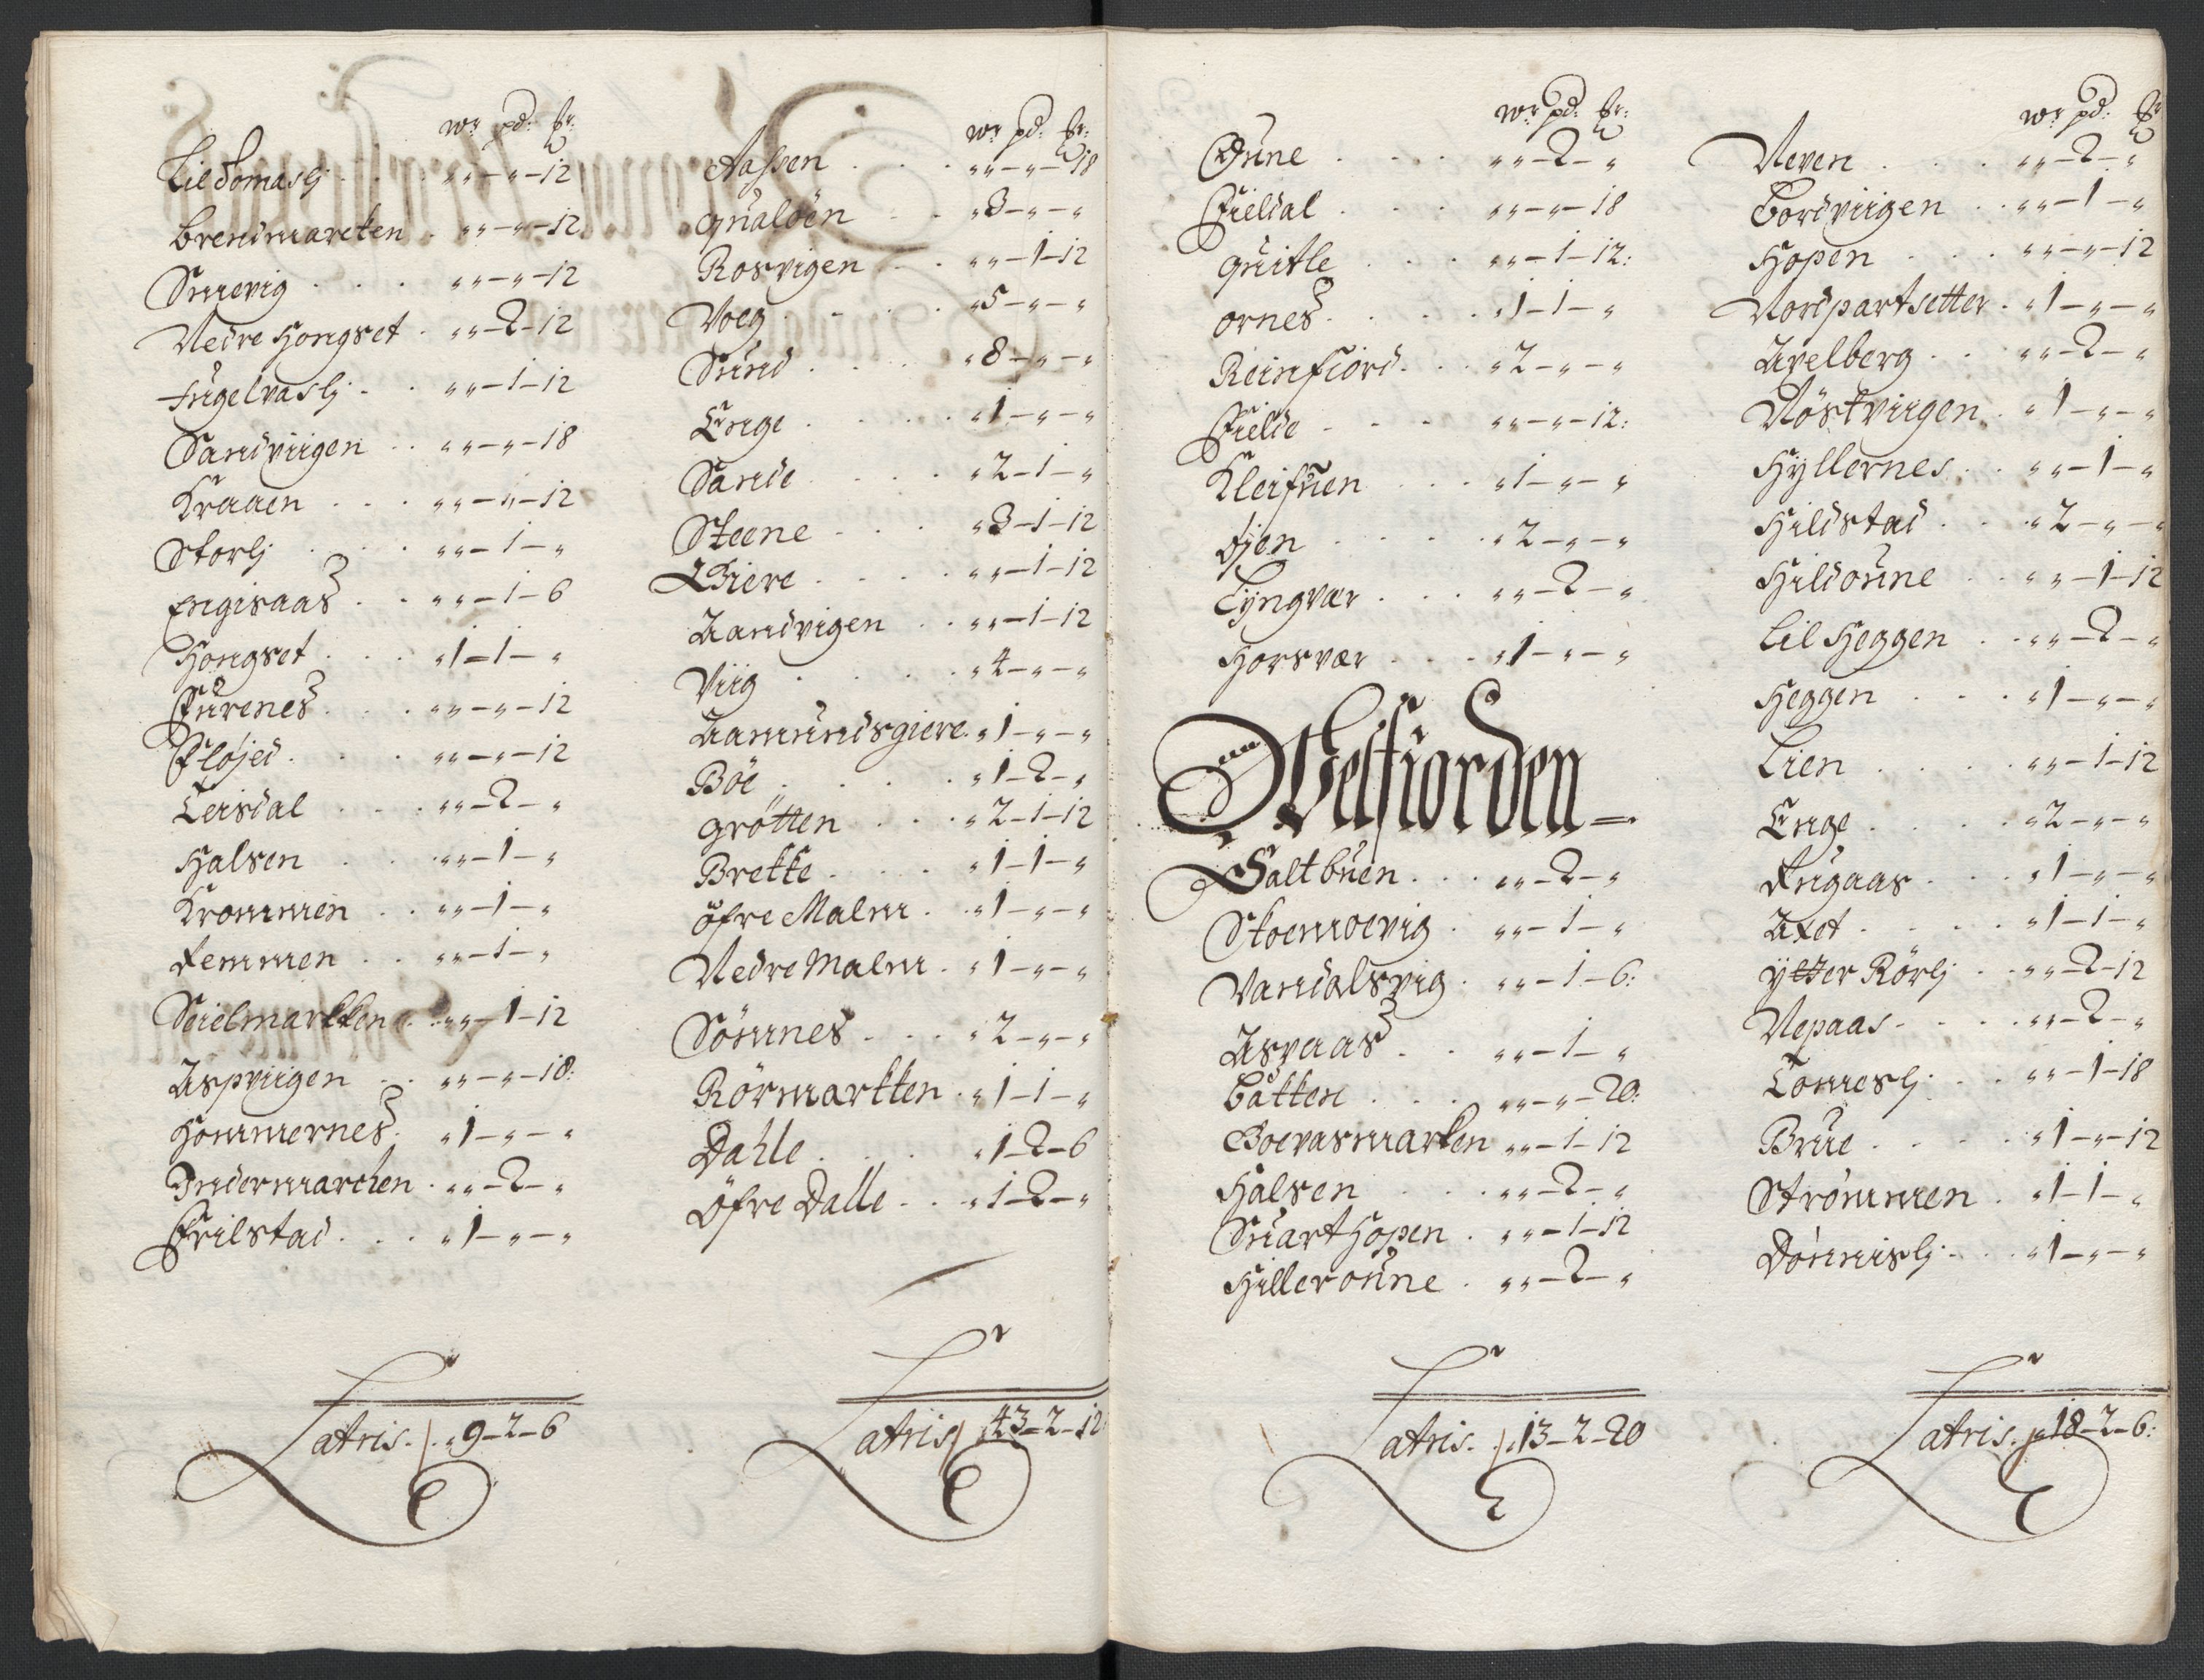 wr pd: lr:
Lil Tomaslj . . „ „ - „ - 12
brendmarcken . „ „ - „ - 12
Smevig . . . „ „ - „ - 12
Nedre Hongset . „ „ - 2 - 12
Fugelvaslj . . „ „ - 1 - 12
Sandviigen . . „ „ - „ - 18
Kraaen . . . „ „ - „ - 12
Storlj . . . „ „ - 1 - „
Engisaas . . „ „ - 1 - 6
Hongset . . . „ 1 - 1 - „
Furenes . . . „ „ - „ - 12
Fløjed . . . „ „ - „ - 12
Leisdal . . . „ „ - 2 - „
Halsen . . . „ „ - 1 - „
Krommen . . „ „ - 1 - „
Femmen . . „ „ - 1 - „
Seielmarkken . „ „ - 1 - 12
Aspviigen . . „ „ - „ - 18:
Hommernes . „ 1 - „ - „
Indermarchen . „ „ - 2 - „
Frilstad . . . „ 1 - „ - „
Latris . . „ 9 - 2 - 6
wr pd: lr:
Aaspen . . . „ „ - „ - 18
qualöen . . „ 3 - „ - „
Rosvigen . . „ „ - 1 - 12
Voeg . . . . „ 5 - „ - „
Sund . . . . „ 8 - „ - „
Enge . . . . „ 1 - „ - „
Sande . . . . „ 2 - 1 - „
Steene . . . „ 3 - 1 - 12
Giere . . . . „ „ - 1 - 12
Aandvigen . . „ „ - 1 - 12
Viig . . . . „ 4 - „ - „
Aamundsgiere . „ 1 - „ - „
Böe . . . . „ 1 - 2 - „
grötten . . . „ 2 - 1 - 12
Brekke . . . „ 1 - 1 - „
öfre Malm . „ 1 - „ - „
Nedre Malm . „ 1 - „ - „
Sömnes . . . „ 2 - „ - „
Rörmarkken . „ 1 - 1 - „
Dahle . . . „ 1 - 2 - 6
Öfre Dalle . . „ 1 - 2 - „
Latris „ 43 - 2 - 12
wr pd: lr:
Oune . . . „ „ - 2 - „
Fieldal . . . „ „ - „ - 18
quitle . . . „ „ - 1 - 12:
ornes . . . . „ 1 - 1 - „
Reinfiord . . „ 2 - „ - „
Fielde . . . „ „ - „ - 12:
Kleifuen . . . „ 1 - „ - „
öjen . . . . „ 2 - „ - „
Lyngvær . . . „ „ - 2 - „
Horsvær . . . „ 1 - „ - „
Welfiorden
Saltbuen . . . „ „ - 2 - „
Stoemoevig . „ „ - 1 - „
Vandalsvig . „ „ - 1 - 6:
Asvaas . . „ „ - 1 - „
batten . . . „ „ - „ - 20:
Boevasmarken „ „ - 1 - 12
Halsen . . . „ „ - 2 - „
Suarthopen . „ „ - 1 - 12
Hilleroune . „ „ - 2 - „
Latris . . „ 13 - 2 - 20
wr pd: lr
Neven . . . „ „ - 2 - „
bordviigen . . „ „ - 1 - „
Hopen . . . „ „ - „ - 12
Nordpartsetter . „ 1 - „ - „
Avelberg . . „ „ - 2 - „
Nöstviigen . „ 1 - „ - „
Hyllernes . . „ „ - 1 - „
Hildstad . . . „ 2 - „ - „
Hildoune . . „ „ - 1 - 12
lil Heggen . . „ „ - 2 - „
Heggen . . . „ 1 - „ - „
Lien . . . . „ „ - 1 - 12
Enge . . . . „ 2 - „ - „
Fugaas . . . „ 1 - „ - „
Axet . . . . „ 1 - 1 - „
ytter Rörlj . . „ „ - 2 - 12
Nepaas . . . „ „ - 2 - „
Tomeslj . . . „ „ - 1 - 18
Brue . . . . „ 1 - „ - 12
Strömmen . „ 1 - 1 - „
Dönnislj . . . „ 1 - „ - „
Latris . „ 18 - 2 - 6: